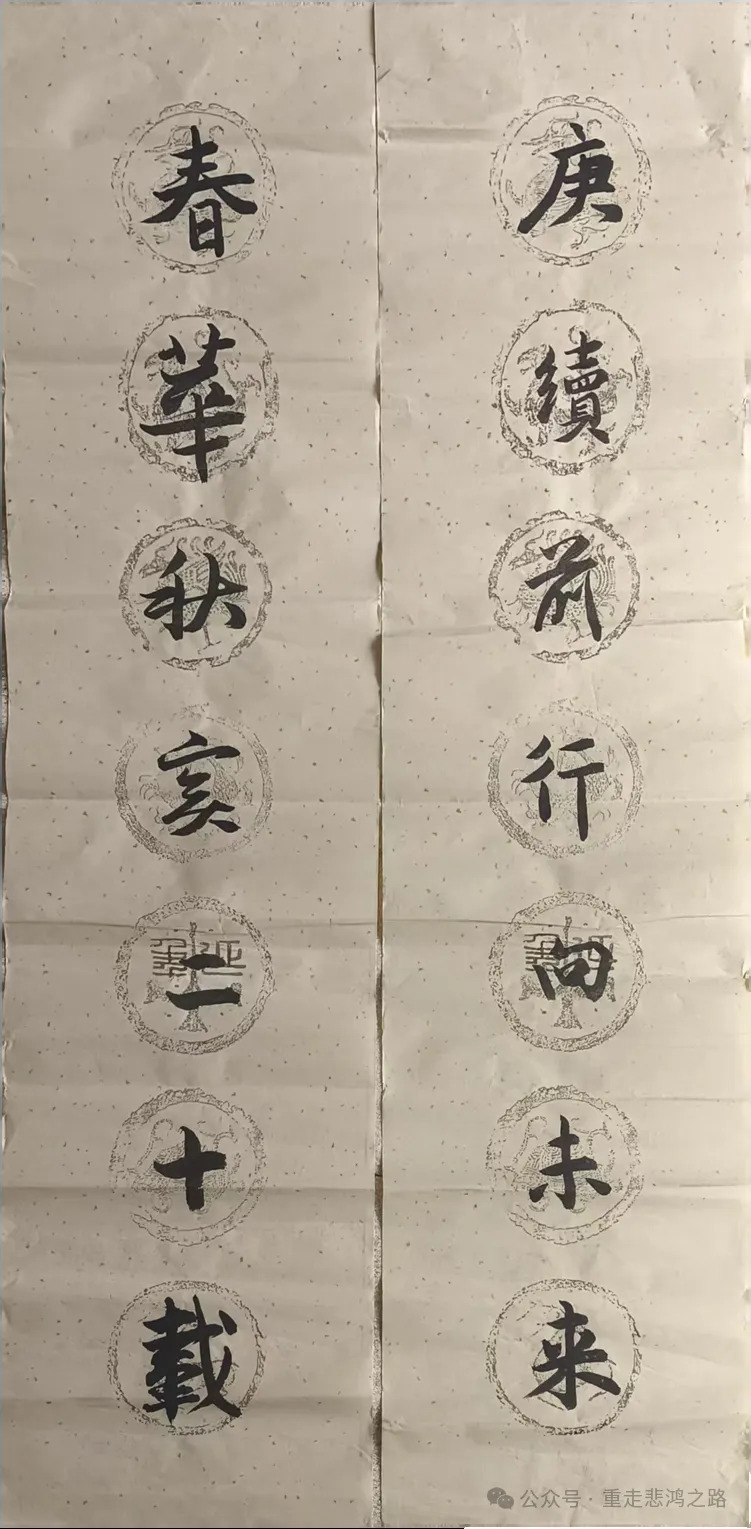 庚續前行向未来
春華秋实二十載
公众号 · 重走悲鸿之路